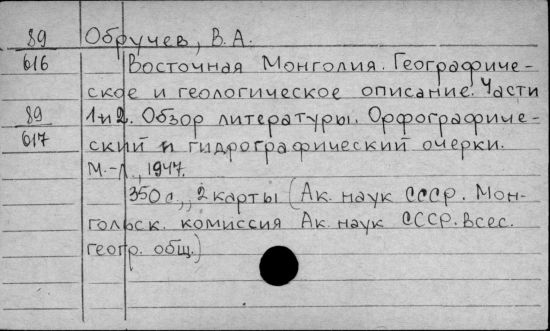 89 Обручев, В. А.
616 Восточная Монголия. Географиче-
ское и геологическое описание. Части
89 1 и 2. Обзор литературы. Орфографиче-
617 ский и гидрографический очерки.
М.-Л., 1947.
350 с., 2 карты (Ак. наук СССР. Мон-
гольск. комиссия Ак. наук СССР. Всес.
геогр. общ.)